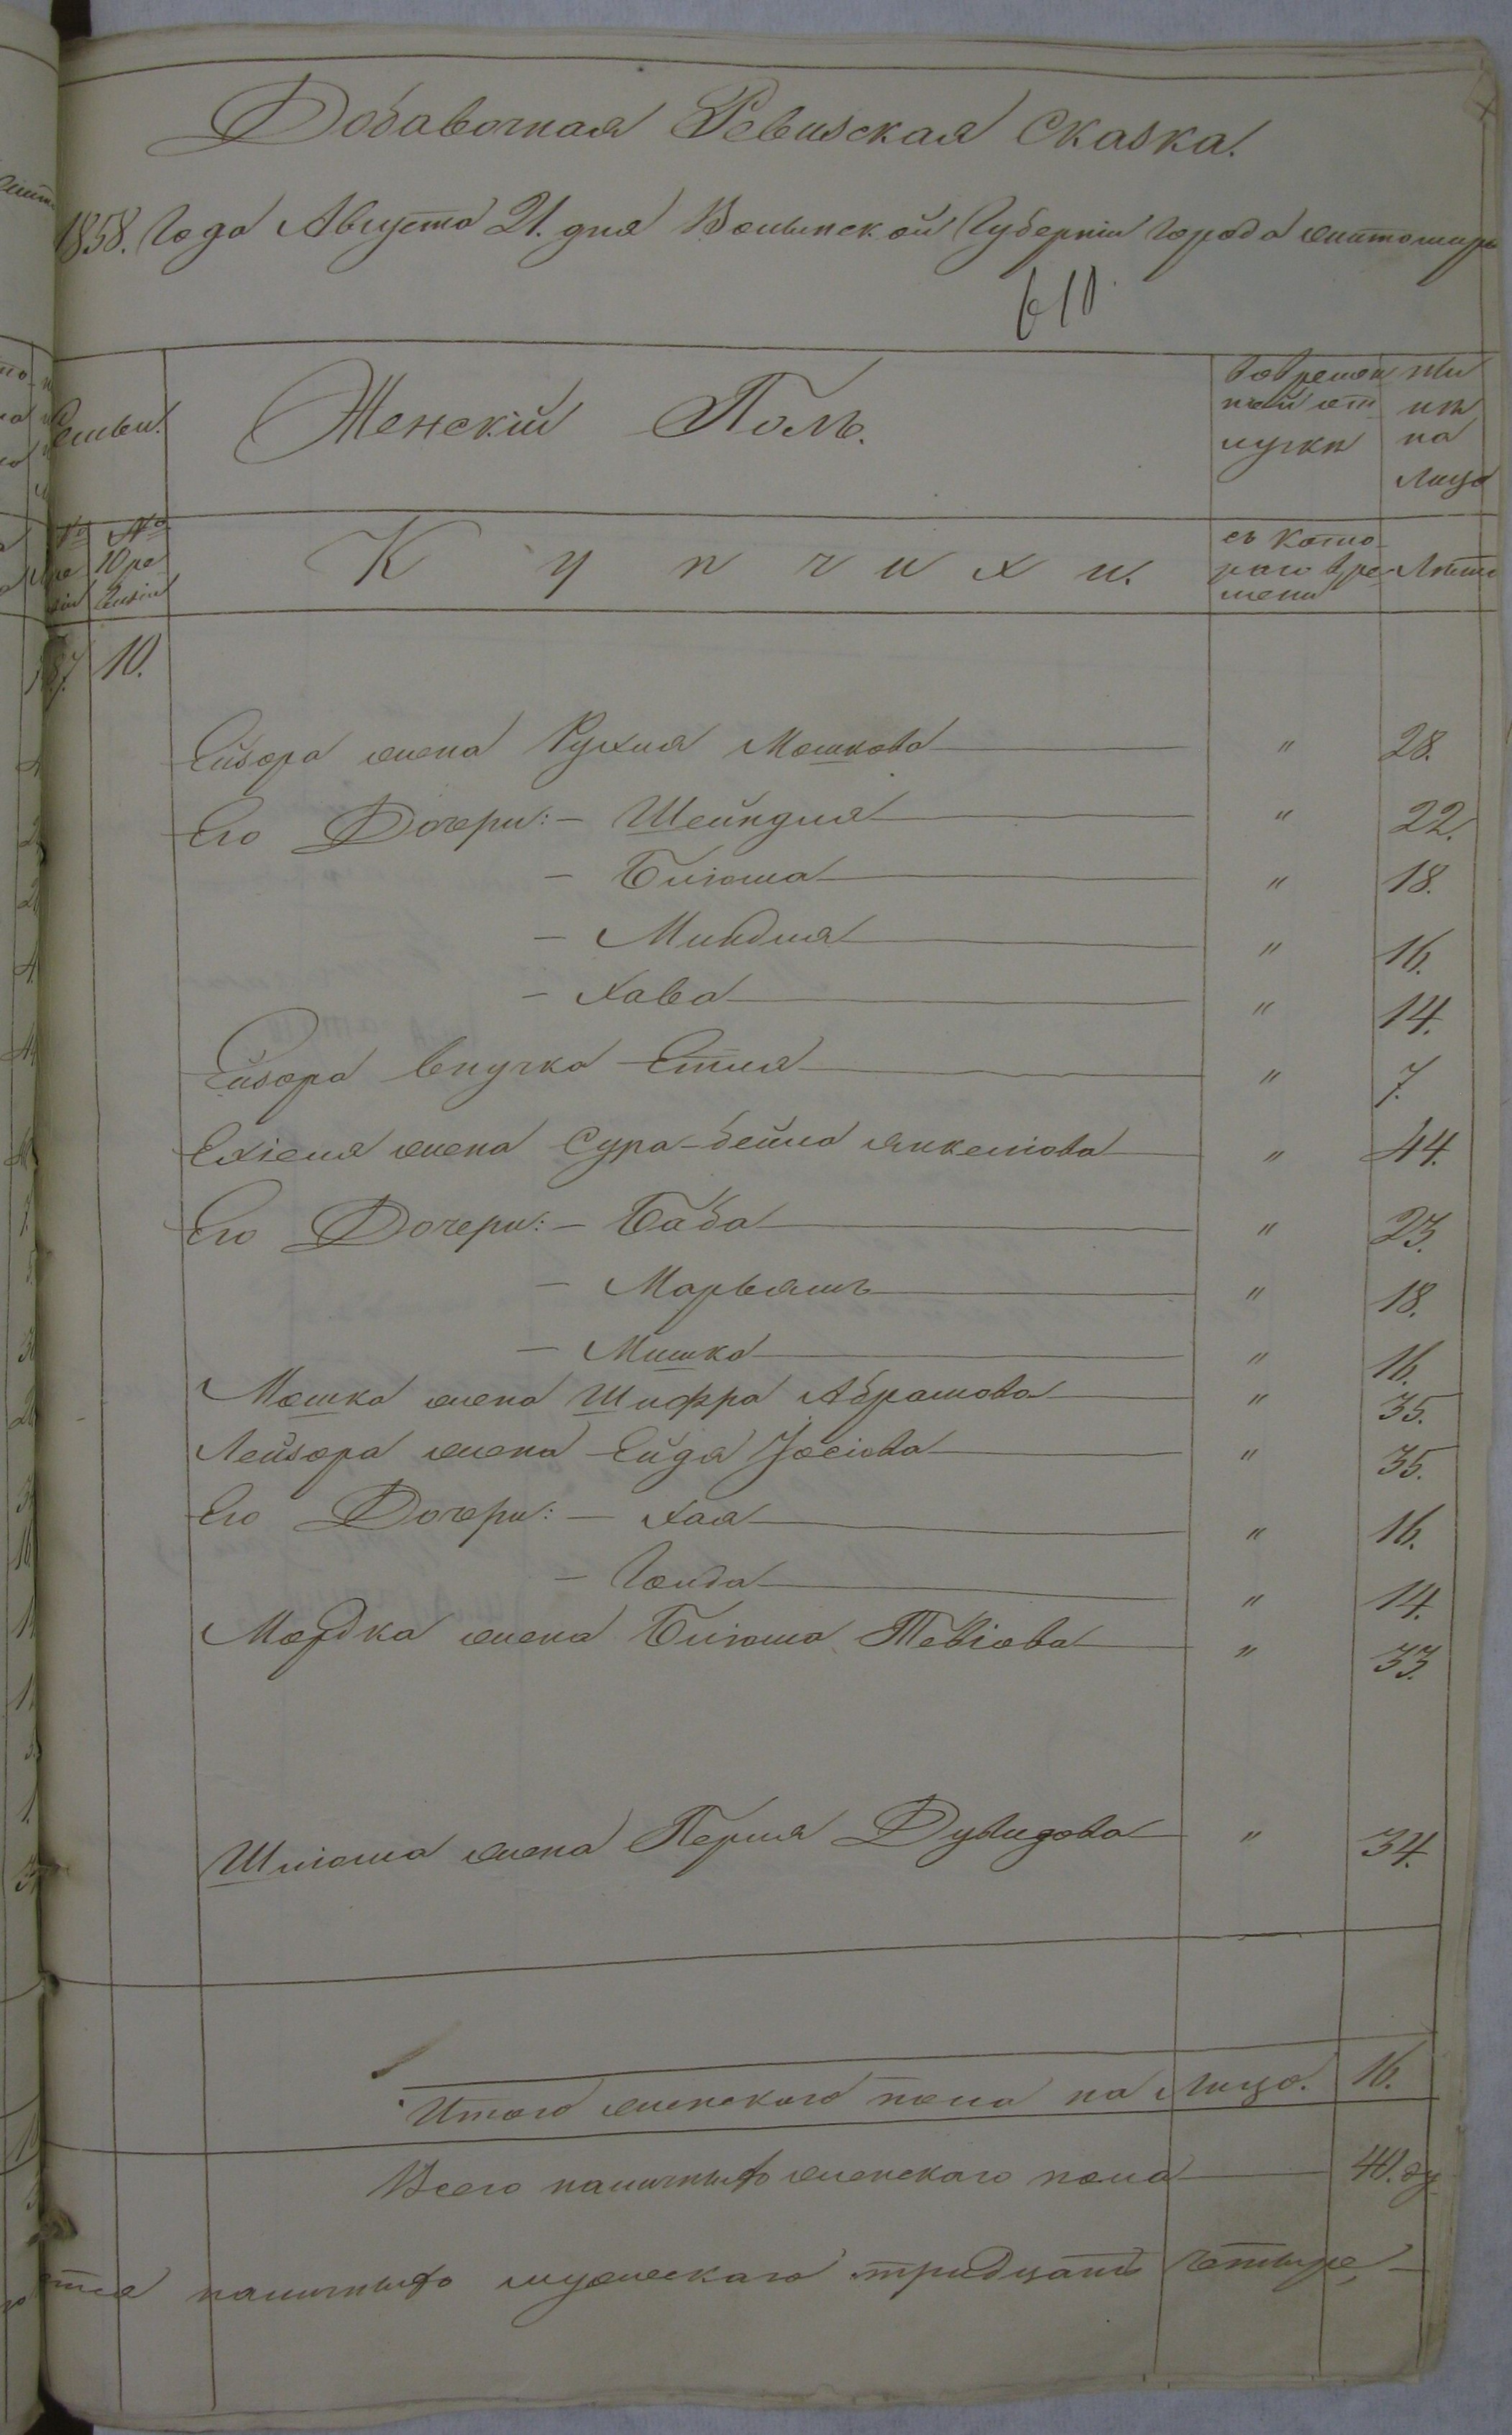 Добавочная Ревизская Сказка.
1858. Года Августа 21. дня Волынской Губерніи Города Житомира
610.
Женскій Полъ.
во временной отлучкѣ
нынѣ на лицо
№ 10 ревизіи
Купчихи.
съ котораго времени
Лѣта
10.
Ейзора жена Рухля Мошкова " 28.
Его Дочери: - Шейндля " 22.
- Блюма " 18.
- Миндля " 16.
- Хава " 14.
Ейзора внучка Етля " 7.
Ехіеля жена Сура-бейла Янкелiова " 44.
Его Дочери: - Баба " 23.
- Марьямъ " 18.
- Мишка " 16.
Мошка жена Шифра Абрамова " 35.
Лейзора жена Ейдя Іосіова " 35.
Его Дочери: - Хая " 16.
- Голда " 14.
Мордка жена Блюма Тевіова " 33.
Шлiома жена Перля Дувидова " 34.
Итого женскаго пола на Лицо. 16.
Всего наличныхъ женскаго пола 40. ду
наличныхъ мужескаго тридцать четыре,